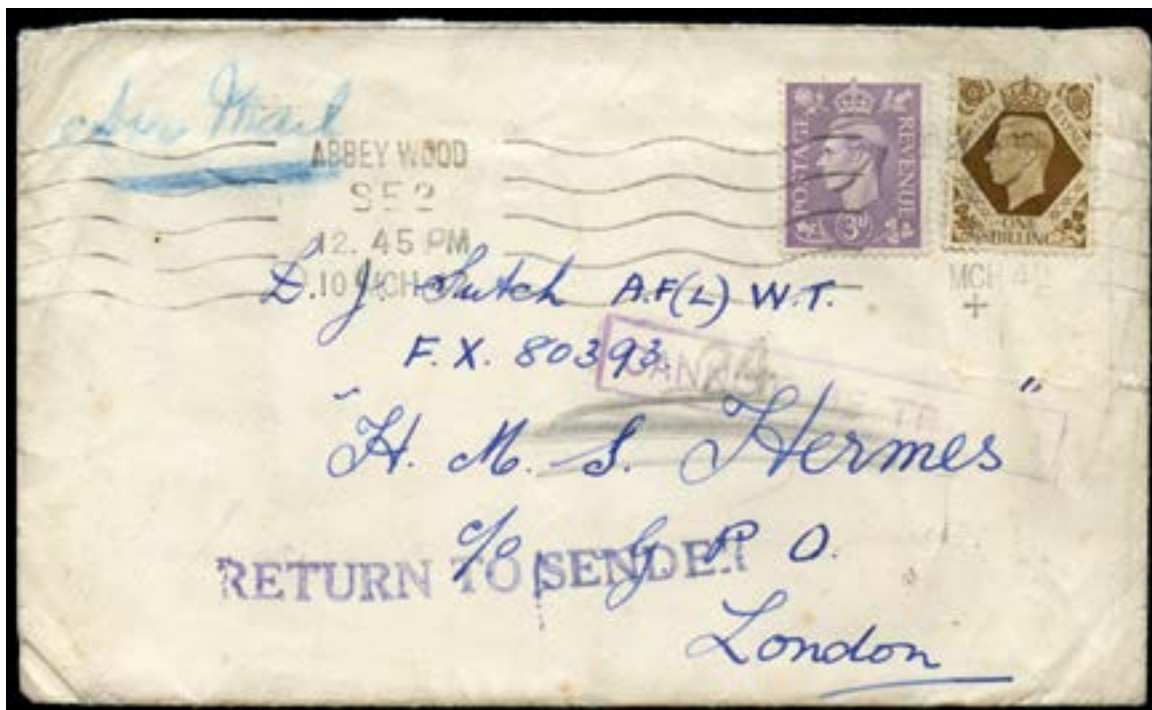 Air Mail
ABBEY WOOD
S E 2
12. 45 PM
10 MCH
POSTAGE REVENUE
3D
ONE
SHILLING
MCH 42
D. J. Sutch A.F(L) W.T.
F. X. 80393.
"H. M. S. Hermes"
c/o G P O.
RETURN TO SENDER
London